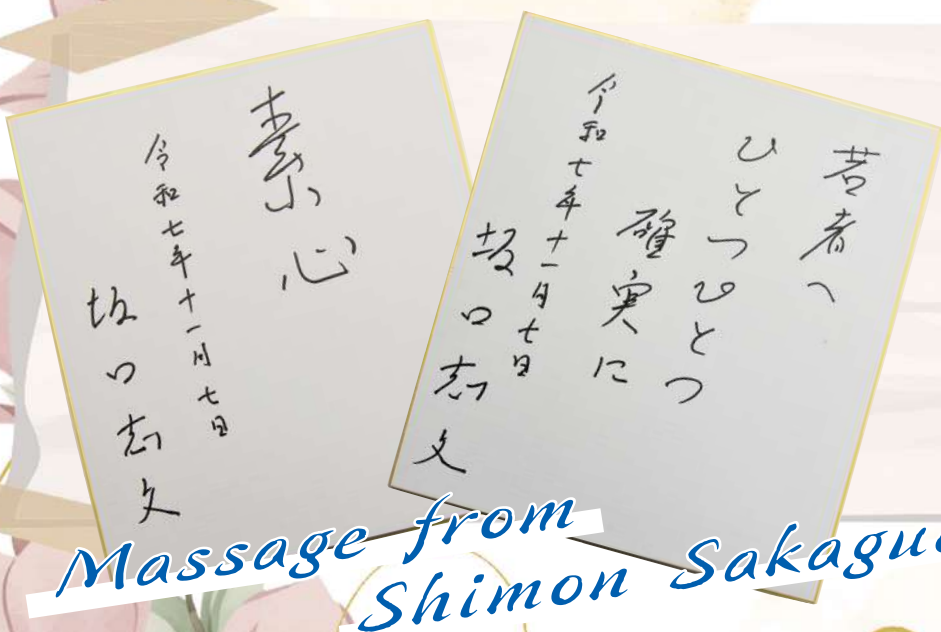 素心
令和七年十一月七日
坂口志文
若者へ
ひとつひとつ
確実に
令和七年十一月七日
坂口志文
Massage from
Shimon Sakagu